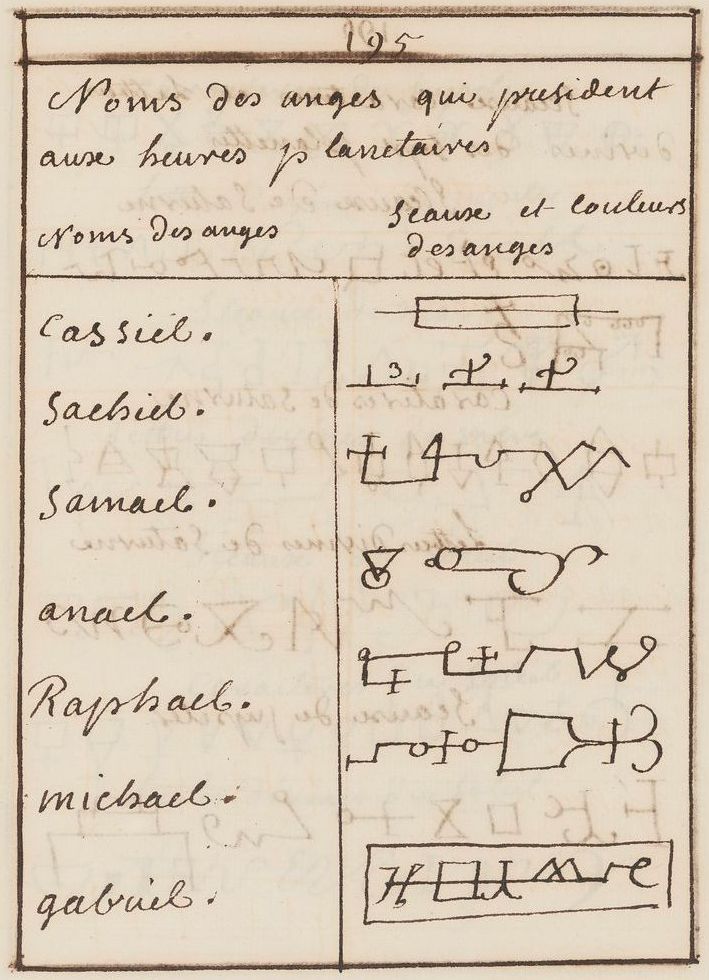 195
Noms des anges qui president
aux heures p lanetaires
Noms des anges
Seaux et couleurs
des anges
Cassiel.
Sachiel.
Samael.
anael.
Raphael.
michael.
gabriel.